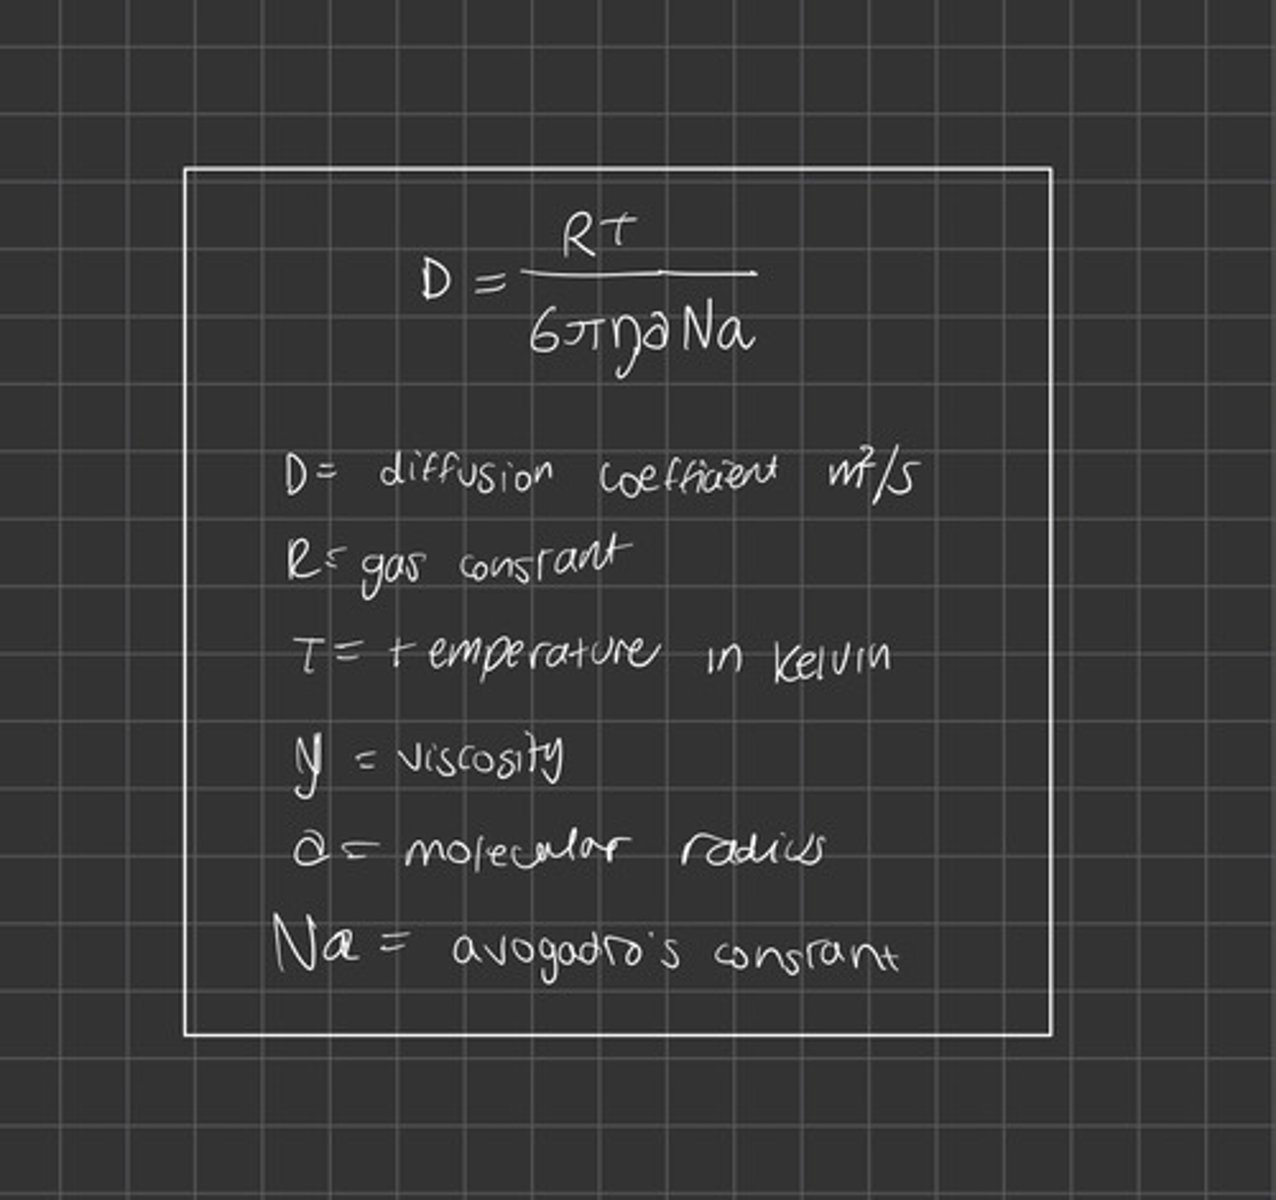 D = RT / 6πηaNa
D= diffusion coefficient m²/s
R= gas constant
T= temperature in kelvin
η = viscosity
a= molecular radius
Na = avogadro's constant